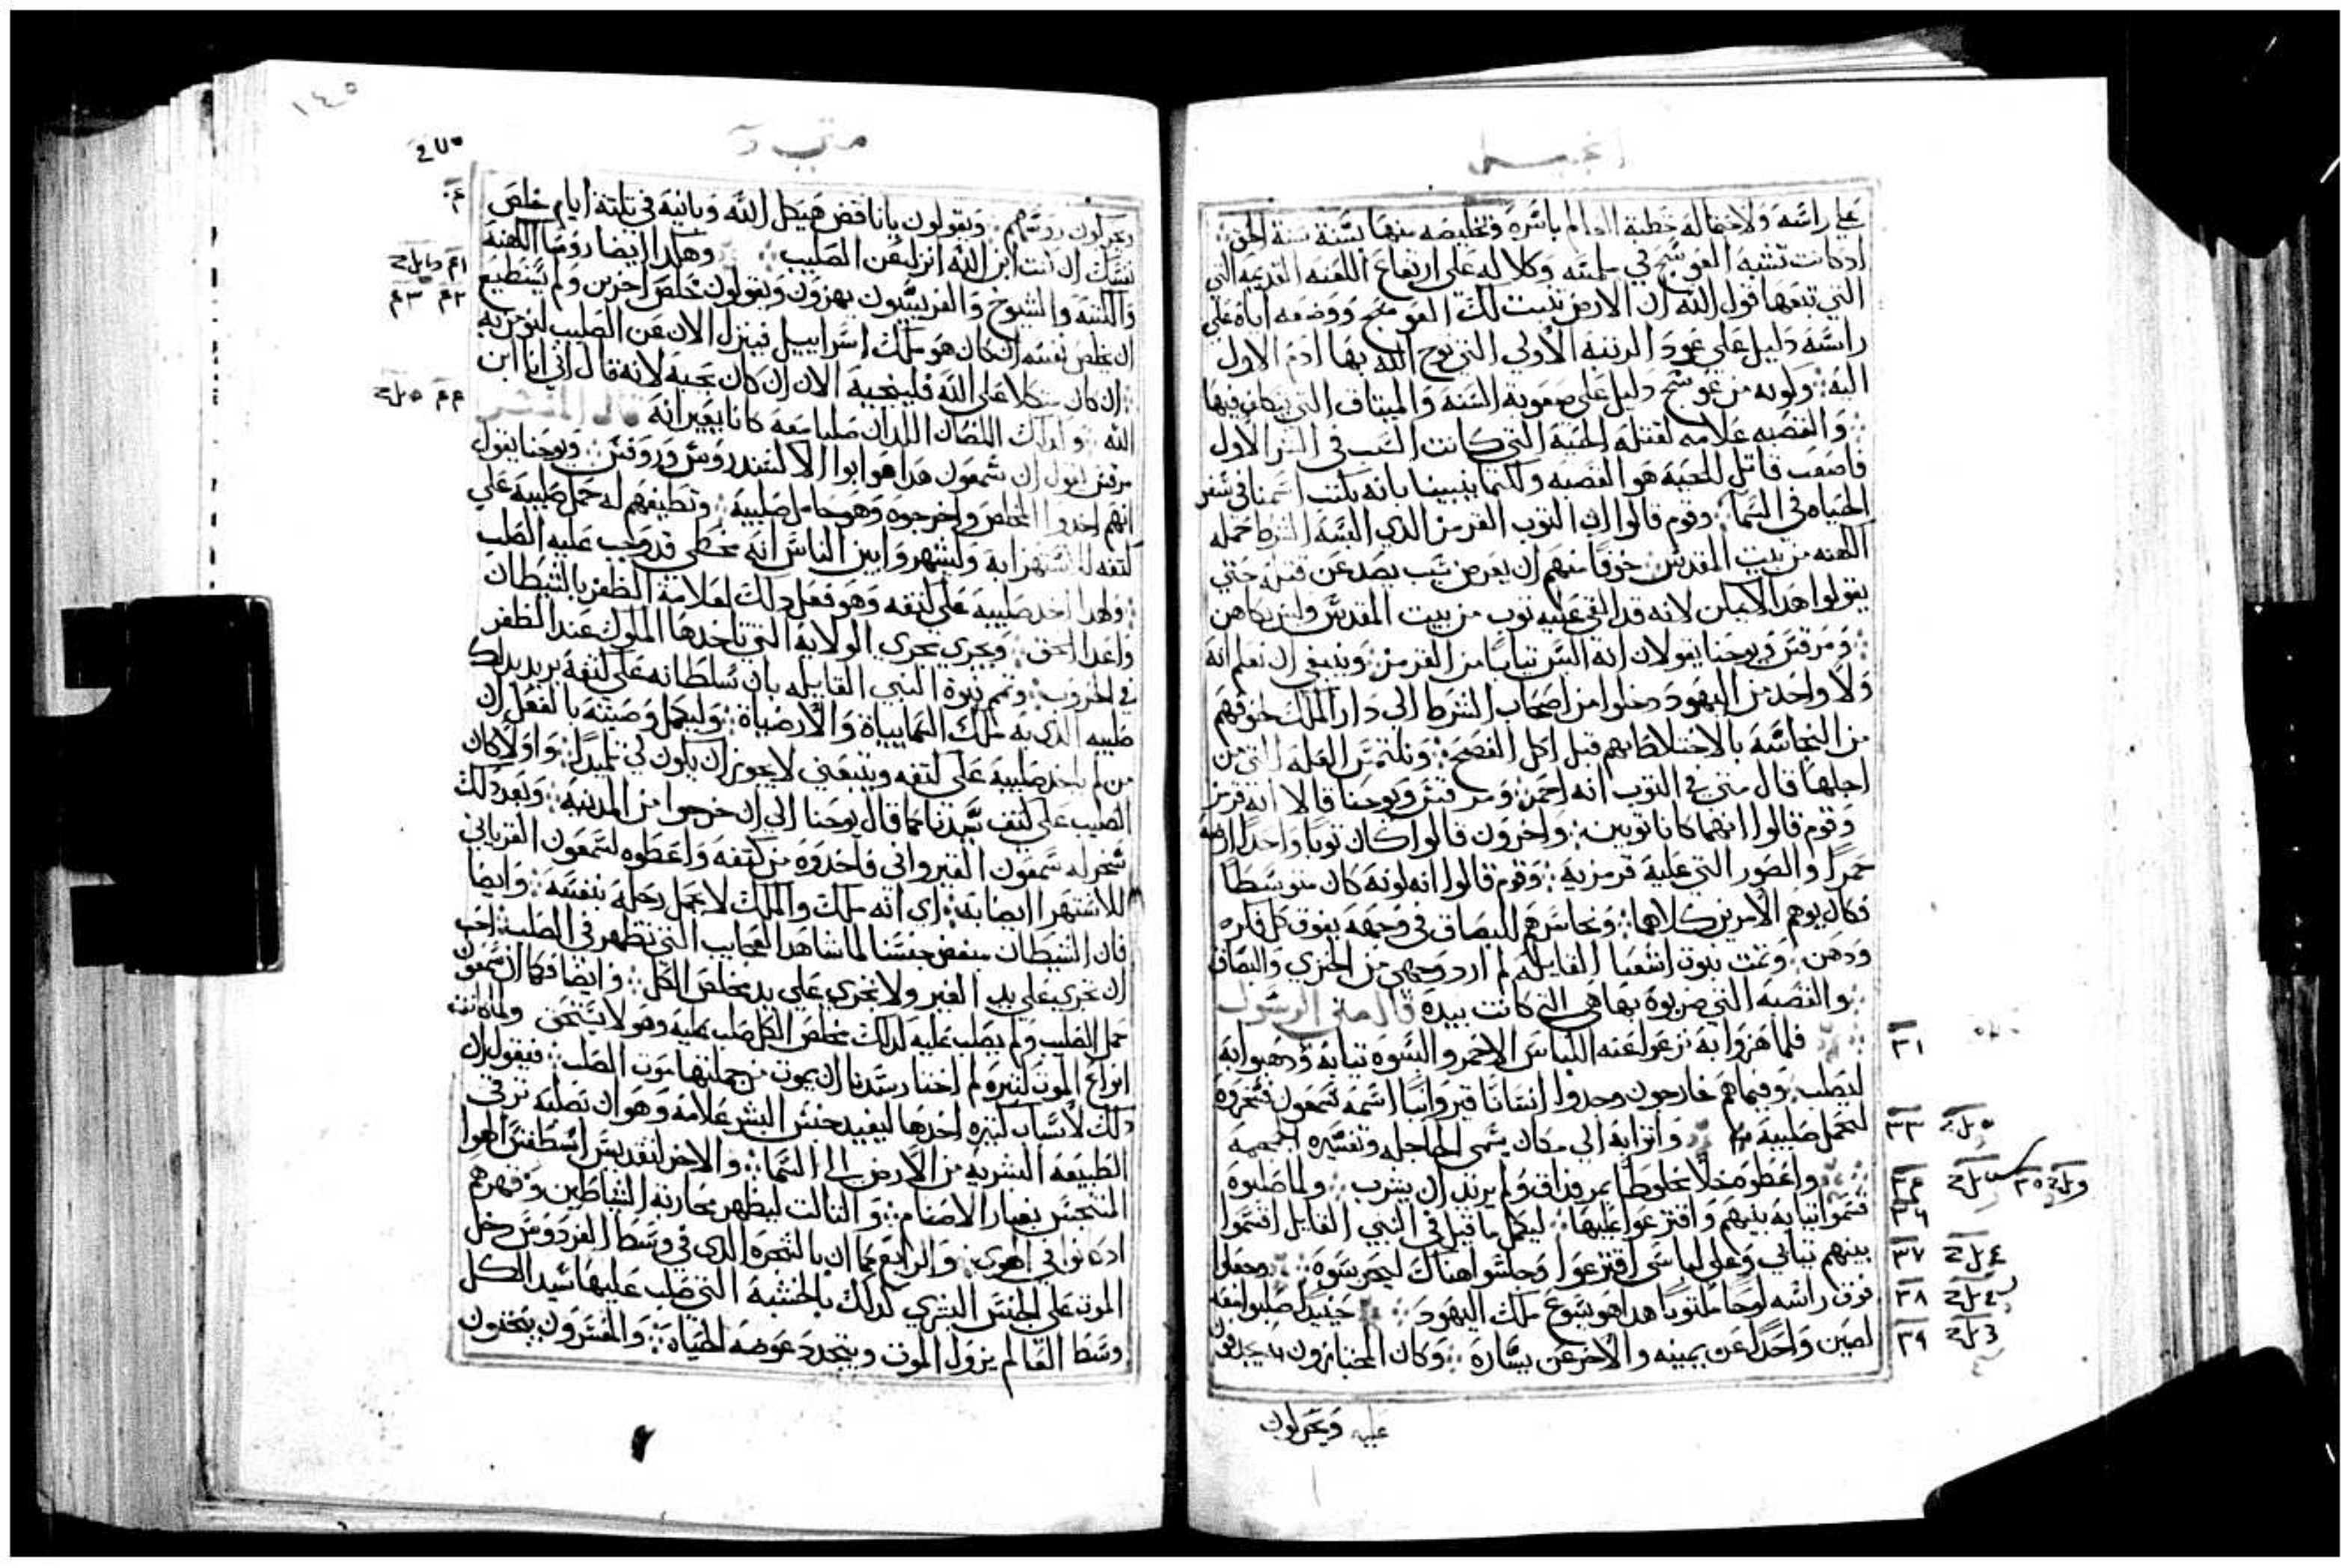 انجيل
على راسه ولاحتماله خطية العالم باسره وتخليصه منها بسنة سنة الحق
اذ كانت تشبه العوسج في سلمته وكلاله على ارتفاع اللعنه القديمه التي
التي تتبعها قول الله ان الارض تنبت لك العوسج ووضعه اياه على
راسه دليل على عود الرتبه الاولى التي توج الله بها ادم الاول
اليه ولونه من عوسج دليل على صعوبة السنه والميتاق التي فيها
والقصبه علامه لقتله الحية التي كانت السبب في الشر الاول
فاصعب قاتل للحية هو القصبه ولكنما ينبينا بانه يكتب اسمنا في سفر
الحياه في السما وقوم قالوا ان التوب القرمز الذي البسه الشرط حمله
الكهنه من بيت المقدس خوفا منهم ان يعرض سبب يصد عن قتله حتي
يقولوا هدا لا يمكن لانه قد القى عليه توب من بيت المقدس وليس بكاهن
ومرقس ويوحنا يقولان انه البس تيابا من القرمز وينبغي ان نعلم انه
ولا واحد من اليهود دخلوا من اصحاب الشرط الى دار الملك خوفهم
من النجاسة بالاختلاط بهم قبل اكل الفصح ونلتمس العله التي من
اجلها قال متى في التوب انه احمر ومرقس ويوحنا قالا انه قرمز
وقوم قالوا انهما كانا توبين واخرون قالوا كان توبا واحدا ارضه
حمرا والصور التي عليه قرمزيه وقوم قالوا انه لونه كان متوسطا
فكان يوهم الامرين كلاهما ونجاسرهم للبصاق في وجهه يفوق كل فكره
ودهن وتمت نبوة اشعيا القايله لم ارد وجهي من الخزي والبصاق
والقصبه التي ضربوه بها هي التي كانت بيده قال متى الرسول
٣١ فلما هزوا به نزعوا عنه اللباس الاحمر والبسوه تيابه ودهبوا به
ليصلب وفيما هم خارجون وجدوا انسانا قيروانيا اسمه شمعون فسخروه
٣٣ لتحمل صليبه واتوا به الى مكان يسمى الجاجله وتفسيره الجمجمه
٣٤ واعطوه خلا مخلوطا بمر فذاق ولم يرد ان يشرب ولما صلبوه
٣٦ قسموا تيابه بينهم واقترعوا عليها ليكمل ما قيل في النبي القايل اقتسموا
٣٧ بينهم تيابي وعلى لباسي اقترعوا وجلسوا هناك ليحرسوه وجعلوا
٣٨ فوق راسه لوحا مكتوبا هدا هو يسوع ملك اليهود حينيد صلبوا معه
٣٩ لصين واحدا عن يمينه والاخر عن يساره وكان المجتازون يجدفون
عليه ويحركون
١٤٥
متى
٢٧٥
ويحركون رووسهم ويقولون يا ناقض هيكل الله وبانيه في تلتة ايام خلص
نفسك ان كنت ابن الله انزل عن الصليب وهكدا ايضا روسا الكهنه
والكتبه والشيوخ والفريسيون يهزون ويقولون خلص اخرين ولم يستطيع
ان يخلص نفسه ان كان هو ملك اسراييل فينزل الان عن الصليب لنومن به
ان كان متكلا على الله فلينجيه الان ان كان يحبه لانه قال اني انا ابن
الله واولايك اللصان اللدان صلبا معه كانا يعيرانه قال المفسر
مرقس يقول ان شمعون هدا هو ابوا الاكسندروس وروفس ويوحنا يقول
انهم اخدوا المخلص واخرجوه وهو حامل صليبه وتطيفهم له حمل صليبه على
كتفه للاستهزا به وليشهروا بين الناس انه مخطي قد وجب عليه الصلب
ولهدا اخد صليبه على كتفه وهو فعل دلك لعلامة الظفر بالشيطان
واعدا الحق ويجري مجري الولاية التي تاخدها الملوك عند الظفر
في الحروب وتتم نبوة النبي القايله بان سلطانه على كتفه يريد بدلك
صليبه الدي به ملك السماييياة والارضياة وليكمل وصيته بالفعل ان
من لم ياخد صليبه على كتفه ويتبعني لا يجوز ان يكون لي تلميدا واولا كان
الصليب على كتف سيدنا كما قال يوحنا الى ان خرجوا من المدينه وبعد دلك
سخر له شمعون القيرواني فاخدوه من كتفه واعطوه لشمعون القرياني
للاستهزا ايضا به اي انه ملك والملك لا يحمل رحله بنفسه وايضا
فان الشيطان مبغض جنسنا لما شاهد العجايب التي تظهر في الصلب احب
ان تجري على يد الغير ولا تجري على يد مخلص الكل وايضا فكما ان شمعون
حمل الصليب ولم يصلب عليه كدلك مخلص الكل صلب عليه وهو لا يستحق ولما كانت
انواع الموت كتيره لم اختار سيدنا ان يموت من جملتها موت الصلب فيقول ان
دلك لاسباب كتيره احدها ليفيد جنس البشر علامة وهو ان بصلبه ترقى
الطبيعه البشريه من الارض الى السما والاخر لتقديس اسطقس الهوا
المتنجس بغبار الاصنام والتالت ليظهر محاربة الشياطين وقهرهم
اد كانوا في الهوى والرابع كما ان بالشجره الدى في وسط الفردوس دخل
الموت على الجنس البشري كدلك بالخشبه التي صلب عليها سيد الكل
وسط العالم يزول الموت ويتجدد عوضه الحياه والمفسرون ينحتون